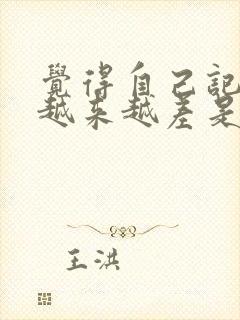 覺得自己記
越來越差是
王洪